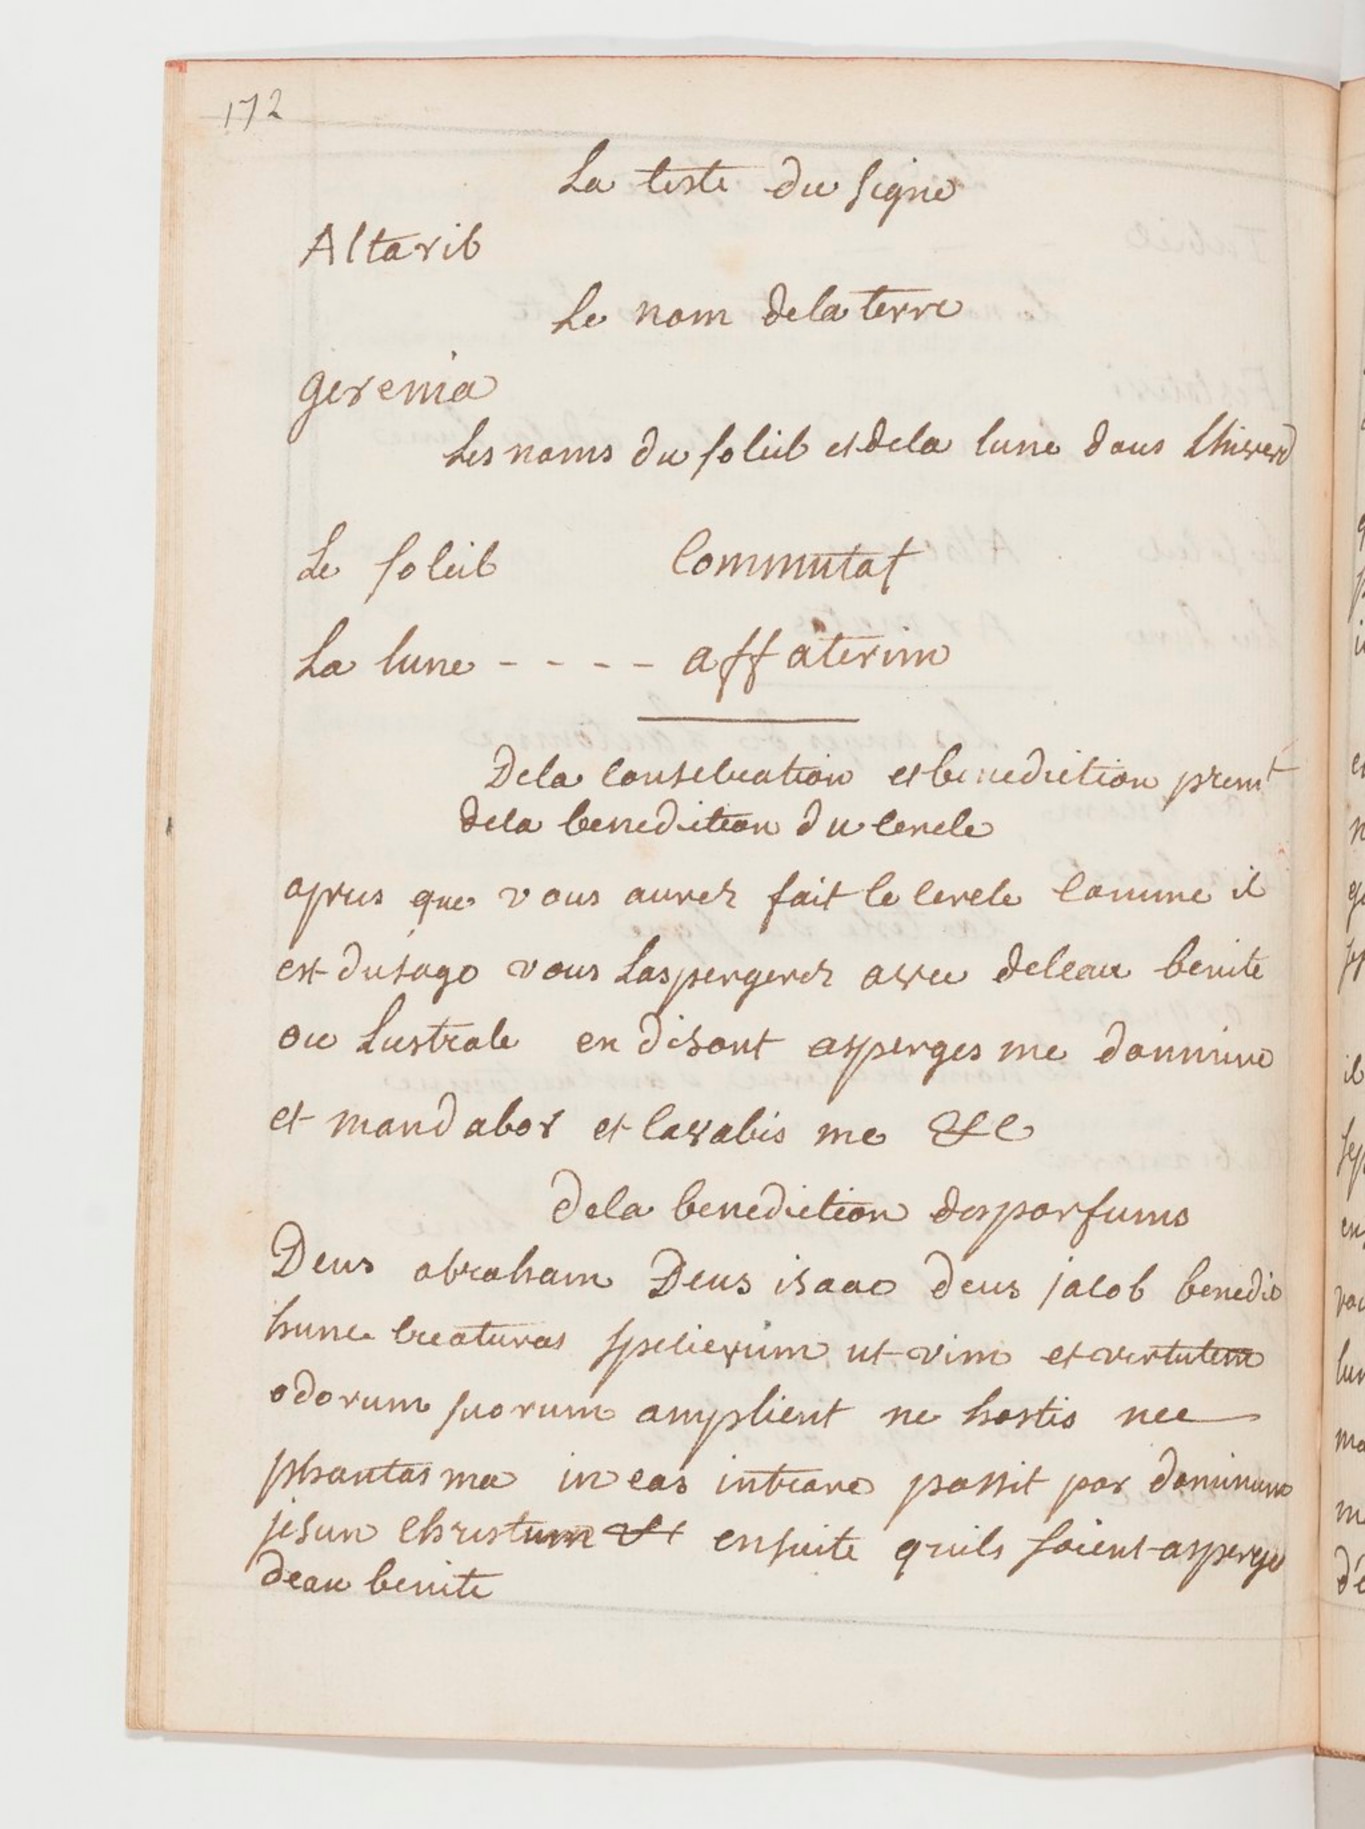 172
La teste du signe
Altarib
Le nom dela terre
gerenia
Les noms du soleil et dela lune dans Lhiverd
Le soleil Commutaf
La lune - - - - affaterim
Dela consecration et benediction premt
dela benediction du cercle
apres que vous aurez fait le cercle comme il
est dusage vous Laspergerez avec deleau benite
ou Lustrale en disant asperges me dommine
et mandabor et lavabis me &c
dela benediction desparfums
Deus abraham Deus isaac deus jacob benedic
hunc creaturas specierum ut vim et virtutem
odorum suorum amplient ne hostis nec
phantasma in eas intrare possit par dominum
jesun christum &c ensuite quils soient asperge
deau benite